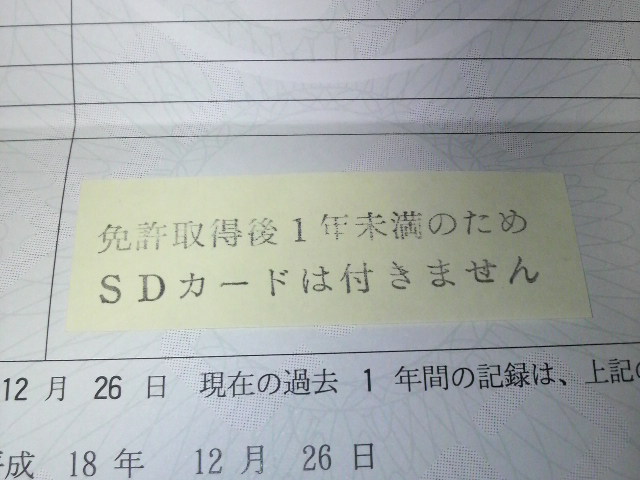 免許取得後1年未満のため
SDカードは付きません
12月 26日 現在の過去 1 年間の記録は、上記の
平成 18年 12月 26日